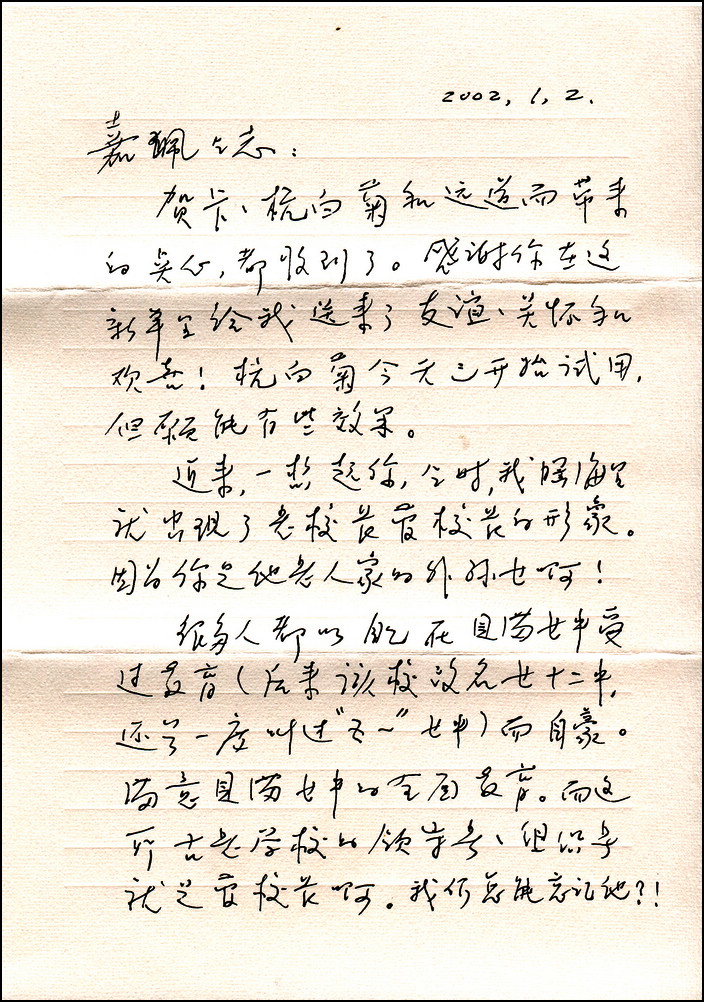 2002.1.2.
嘉珮同志：
贺卡、杭白菊和远道而带来
的点心，都收到了。感谢你在这
新年里给我送来了友谊、关怀和
欢喜！杭白菊今天已开始试用，
但愿能有些效果。
近来，一想起你，同时，我脑海里
就出现了老校长管校长的形象。
因为你是他老人家的外孙女啊！
很多人都以自己在贝满女中受
过教育（后来该校改名女十二中，
还另一度叫过“五一”女中）而自豪。
满意贝满女中的全面教育。而这
所古老学校的领导者、组织者
就是管校长啊。我们怎能忘记他？！